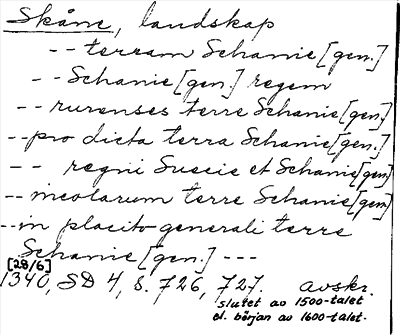 Skåne, landskap
-- terram Schanie [gen.]
-- Schanie [gen.] regem
-- rurenses terre Schanie [gen.]
-- pro dicta terra Schanie [gen.]
-- regni Suecie et Schanie [gen]
-- incolarum terre Schanie [gen]
-- in placito generali terre
Schanie [gen.] ---
[28/6]
1340, SD 4, s. 726, 727. avskr.
slutet av 1500-talet
el. början av 1600-talet.